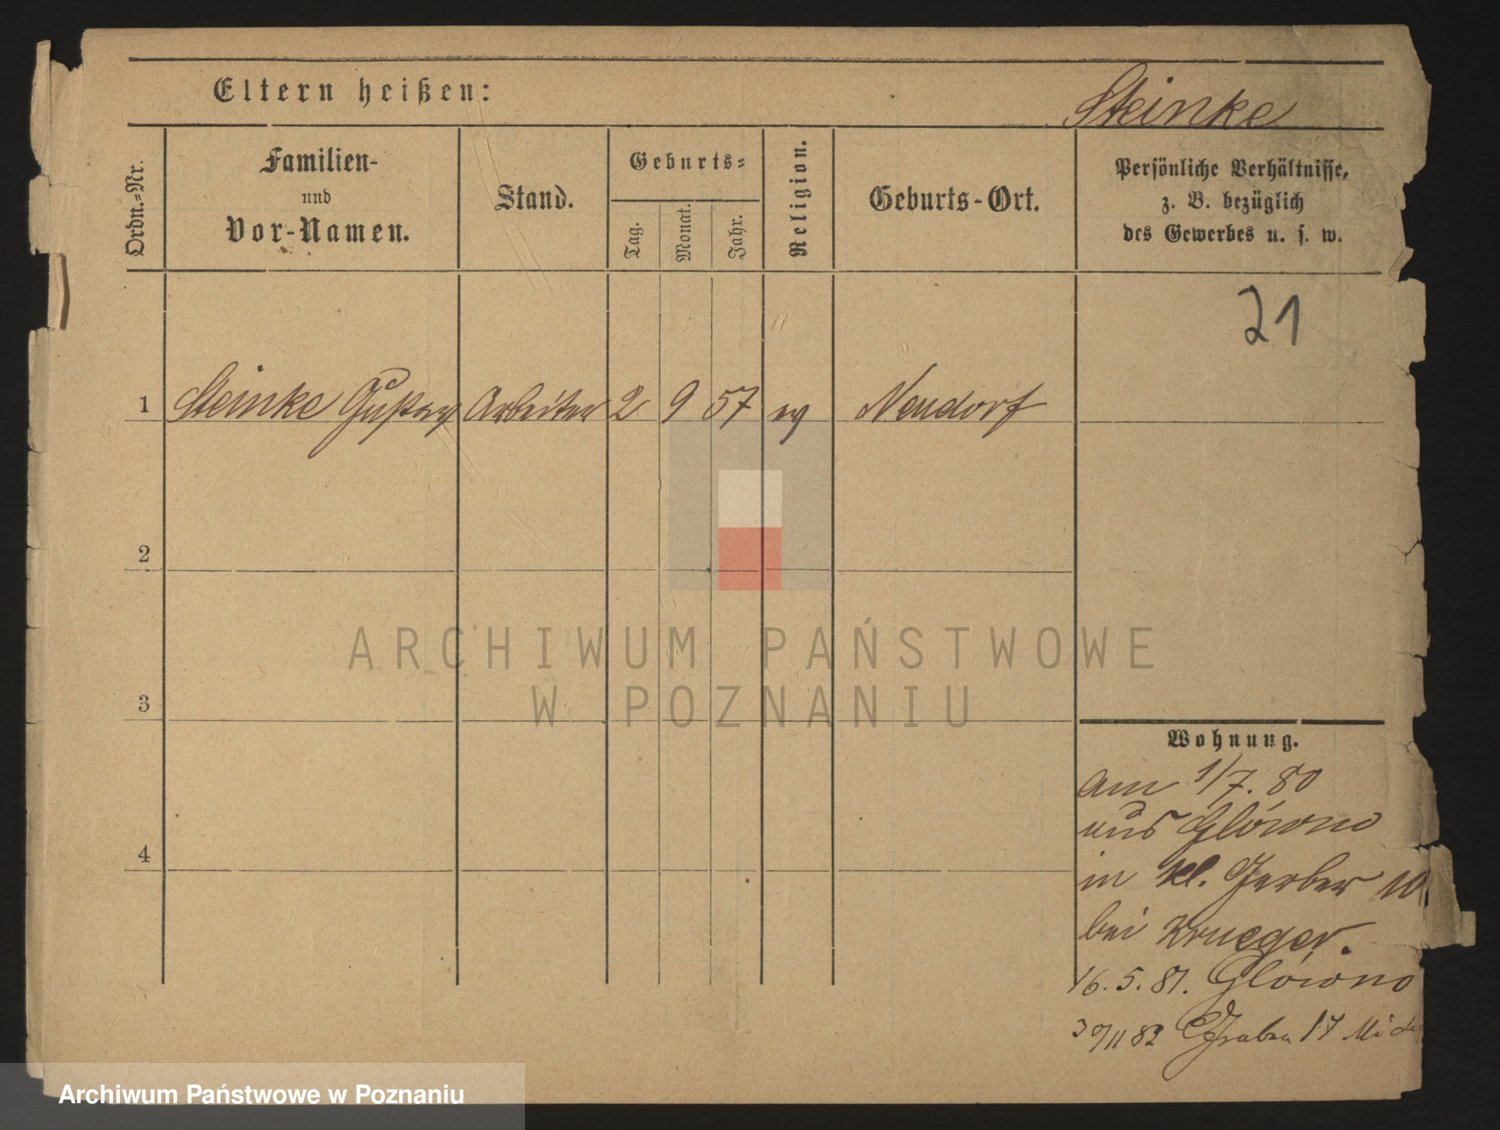 Eltern heißen:
Steinke
Ordn.=Nr.
Familien-
und
Vor-Namen.
Stand.
Geburts=
Tag.
Monat.
Jahr.
Religion.
Geburts-Ort.
Persönliche Verhältnisse,
z. B. bezüglich
des Gewerbes u. s. w.
21
1 Steinke Gustav Arbeiter 2 9 57 ev Neudorf
2
3
4
ARCHIWUM PAŃSTWOWE
W POZNANIU
Wohnung.
am 1/7. 80
aus Glówno
in kl. Gerber 10
bei Krueger.
16. 5. 81. Glówno
30/11 82 Graben 17
Archiwum Państwowe w Poznaniu